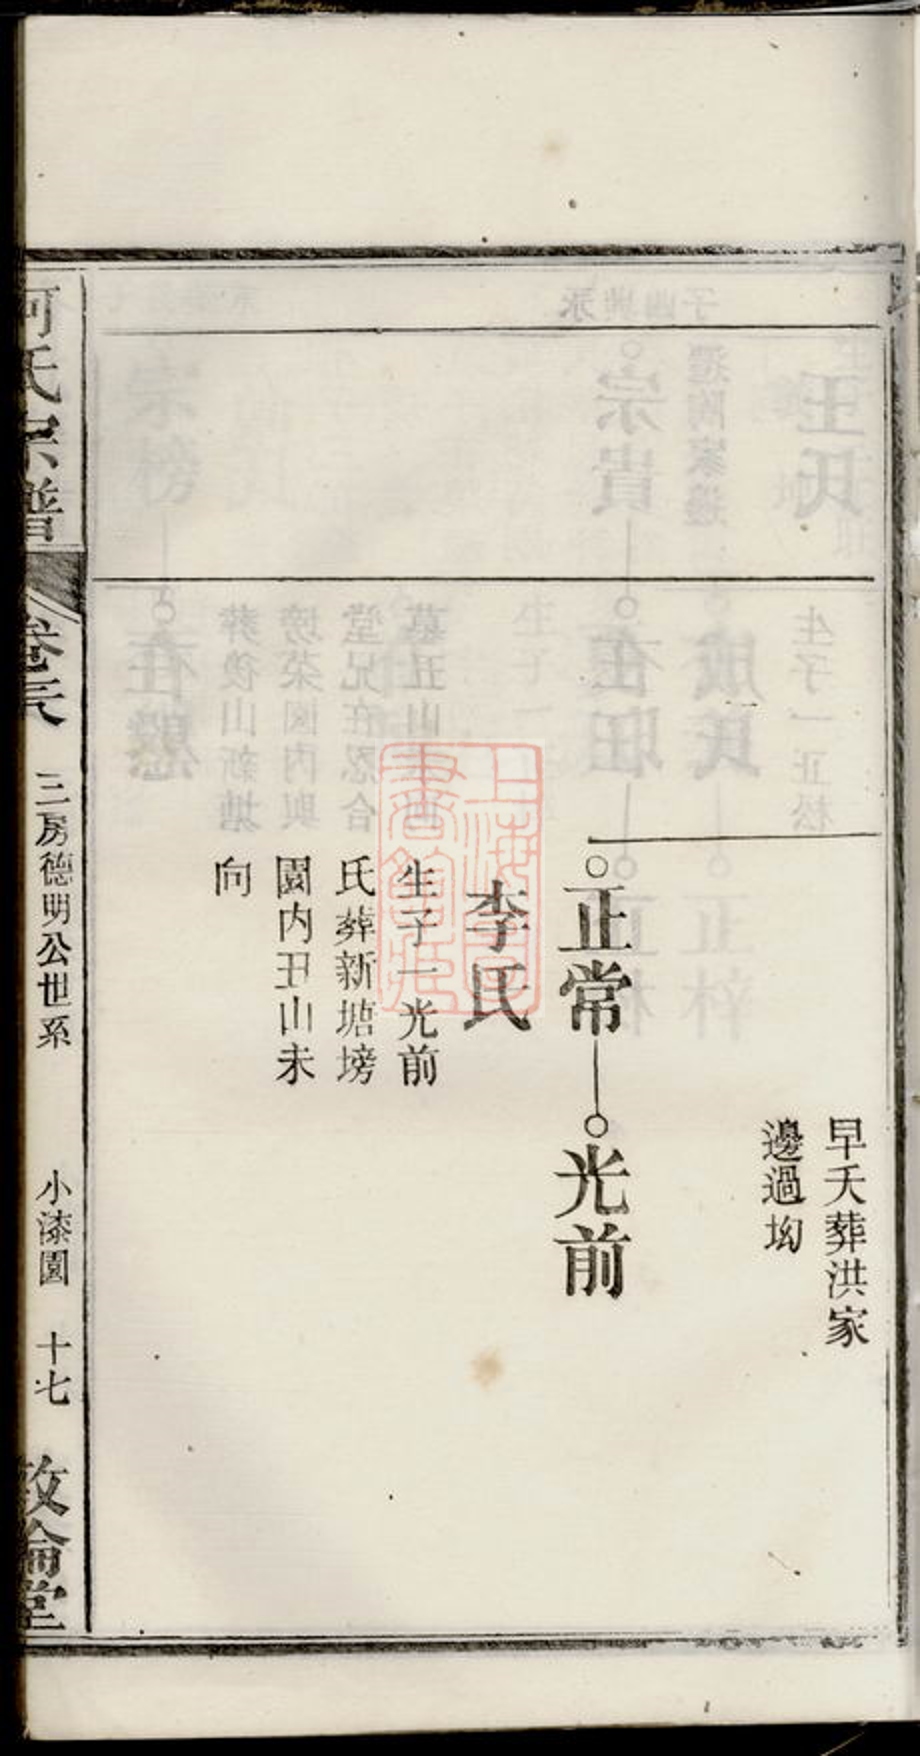 早夭葬洪家
邊過坳
正常
光前
李氏
生子一光前
氏葬新塘塝
園內丑山未
向
何氏宗譜
卷三
三房德明公世系
小漆園
十七
敦倫堂
上海圖書館藏